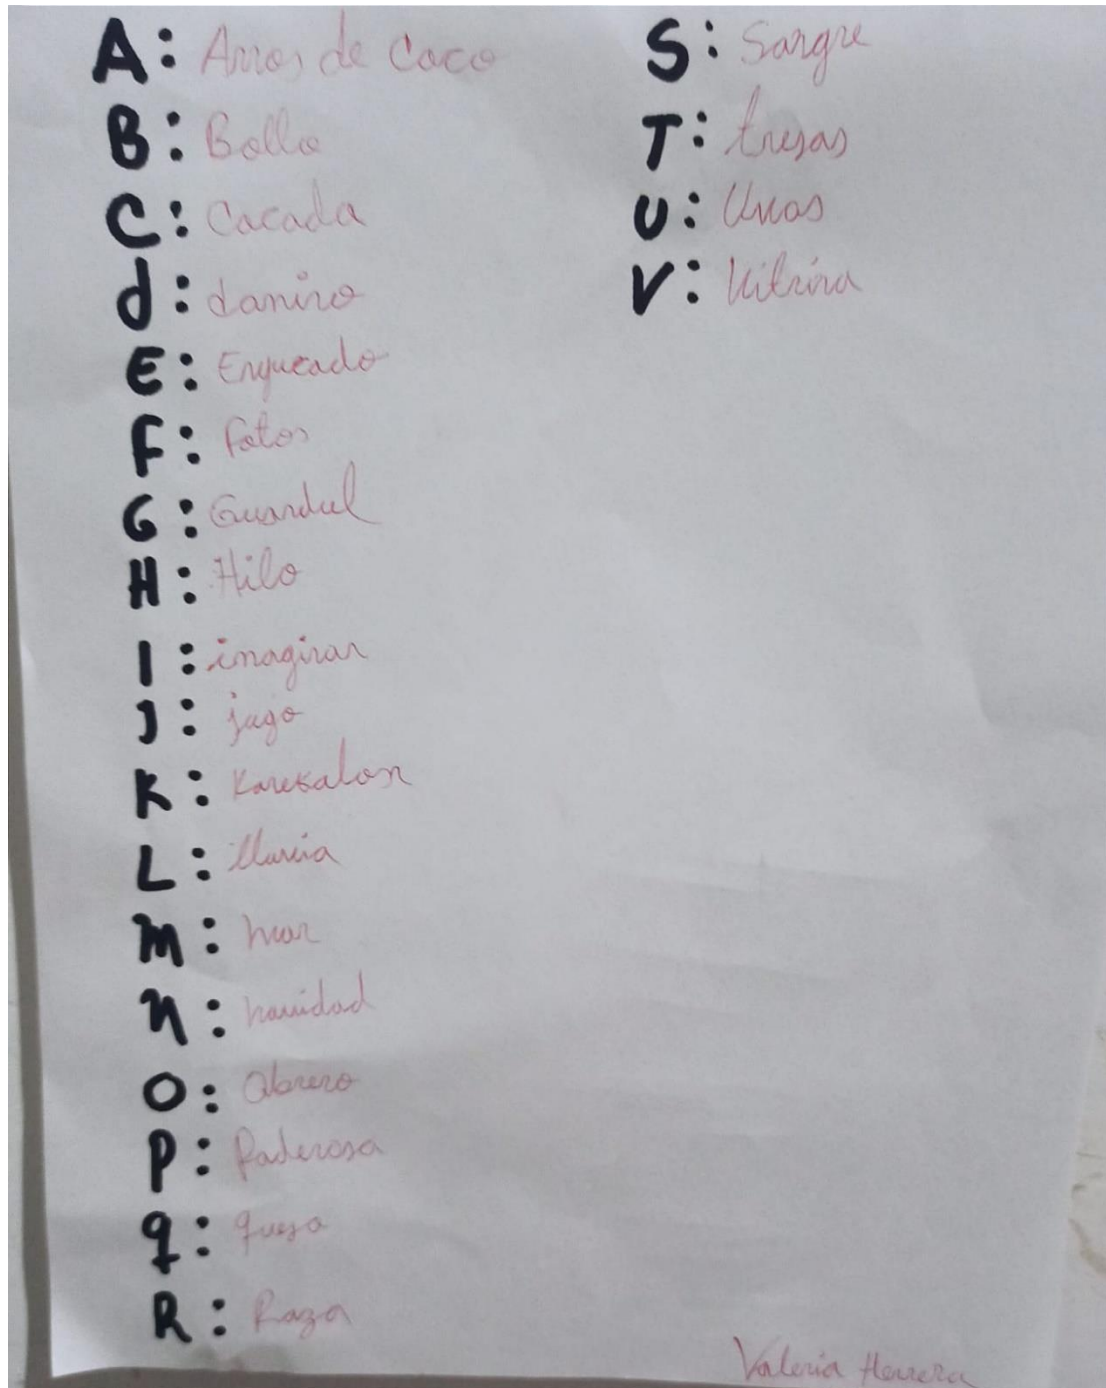 A: Arros de Coco
B: Bollo
C: Cocada
d: damiro
E: Enyucado
F: Fotos
G: Guandul
H: Hilo
I: imaginar
J: jugo
K: Karekalon
L: lluvia
m: mar
n: navidad
O: Obrero
P: Poderosa
q: queso
R: Raza
S: Sangre
T: trusas
U: Uvas
V: Vitrina
Valeria Herrera